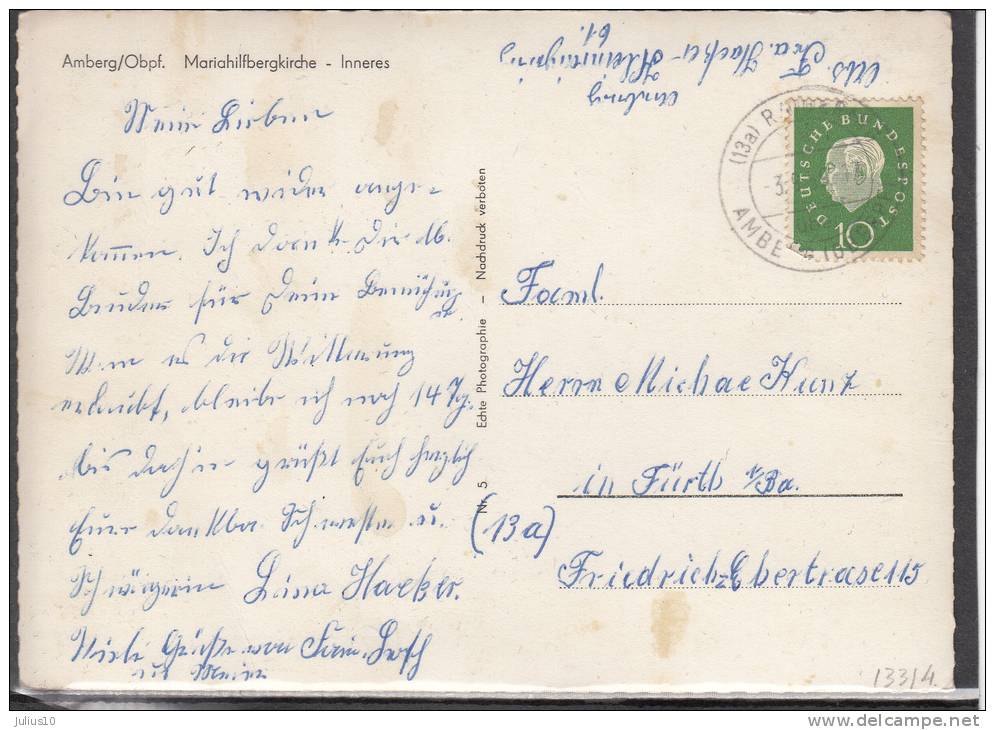 Amberg/Obpf. Mariahilfbergkirche - Inneres
Meine Lieben
Bin gut wider ange-
kommen. Ich danke Dir lb.
Bruder für Deine Bemühung
u.
Wenn es die Witterung
erlaubt, bleibe ich noch 14 Tg.
bis dahin grüßt Euch herzlich
Eure dankba. Schwester u.
Schwägerin Lina Hacker.
Viele Grüße von Fam.
und Meier
Nr. 5 Echte Photographie - Nachdruck verboten
Abs. Hacker
Amberg
61.
(13a)
AMBERG
-3.
DEUTSCHE BUNDESPOST
10
Faml.
Herrn Michae Kunz
in Fürth i/Ba.
(13a)
Friedrich-Ebertrase 115
133/4.
julius10
www.delcampe.net